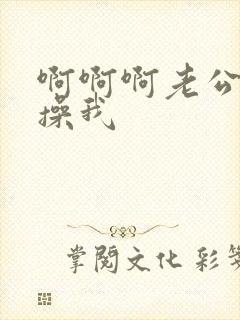 啊啊啊老公
操我
掌閱文化 彩